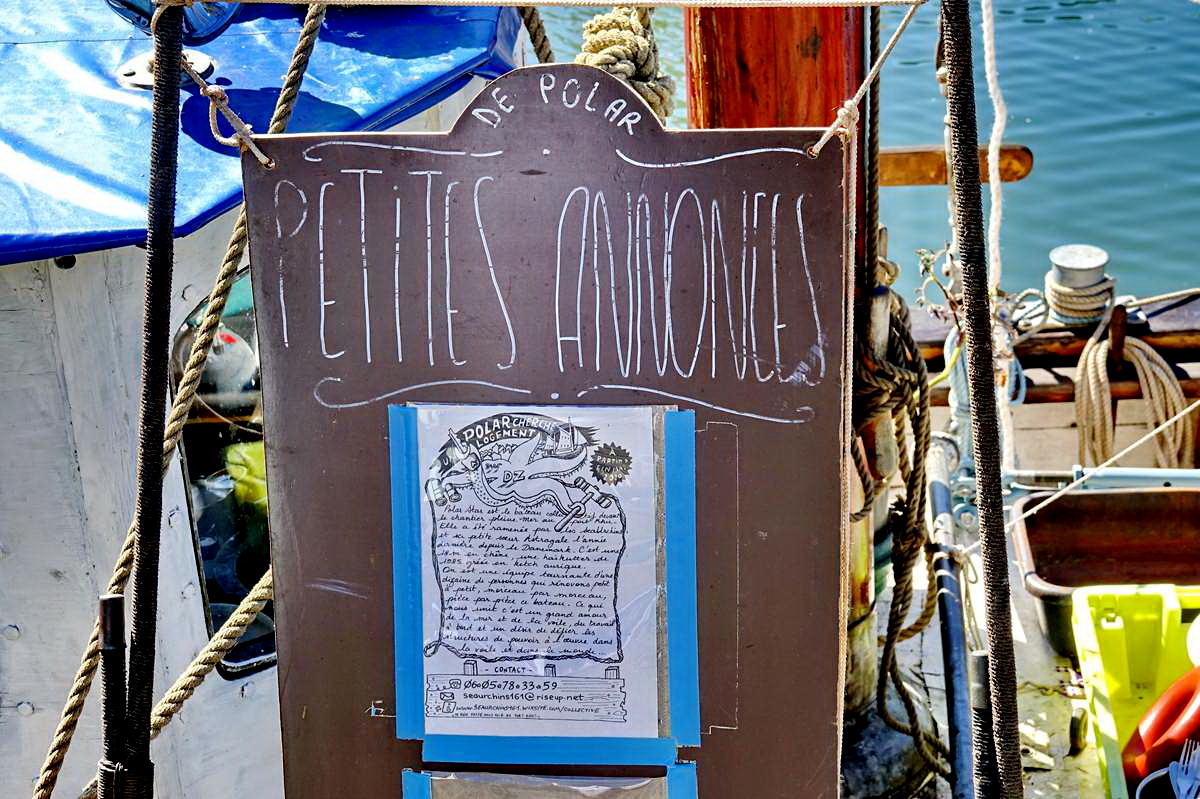 DE POLAR
PETITES ANNONCES
POLAR CHERCHE
LOGEMENT
DZ
A
PARTIR
Polar Star est le bateau devant
le chantier pleine-Mer au port Rhu.
Elle a été ramenée par les
et sa petite sœur Astragale l'année
dernière depuis le Danemark. C'est une
18m en chêne, une haikutter de
gréée en ketch aurique.
On est une équipe tournante d'une
dizaine de personnes qui rénovons petit
à petit, morceau par morceau,
pièce par pièce ce bateau. Ce qui
nous unit c'est un grand amour
de la mer et de la voile, du travail
à bord et un désir de défier les
structures de pouvoir à l'œuvre dans
la voile et dans le monde...
- CONTACT -
06.05.78.33.59
seaurchins161@riseup.net
www.SEAURCHINS161.WIXSITE.COM/COLLECTIVE